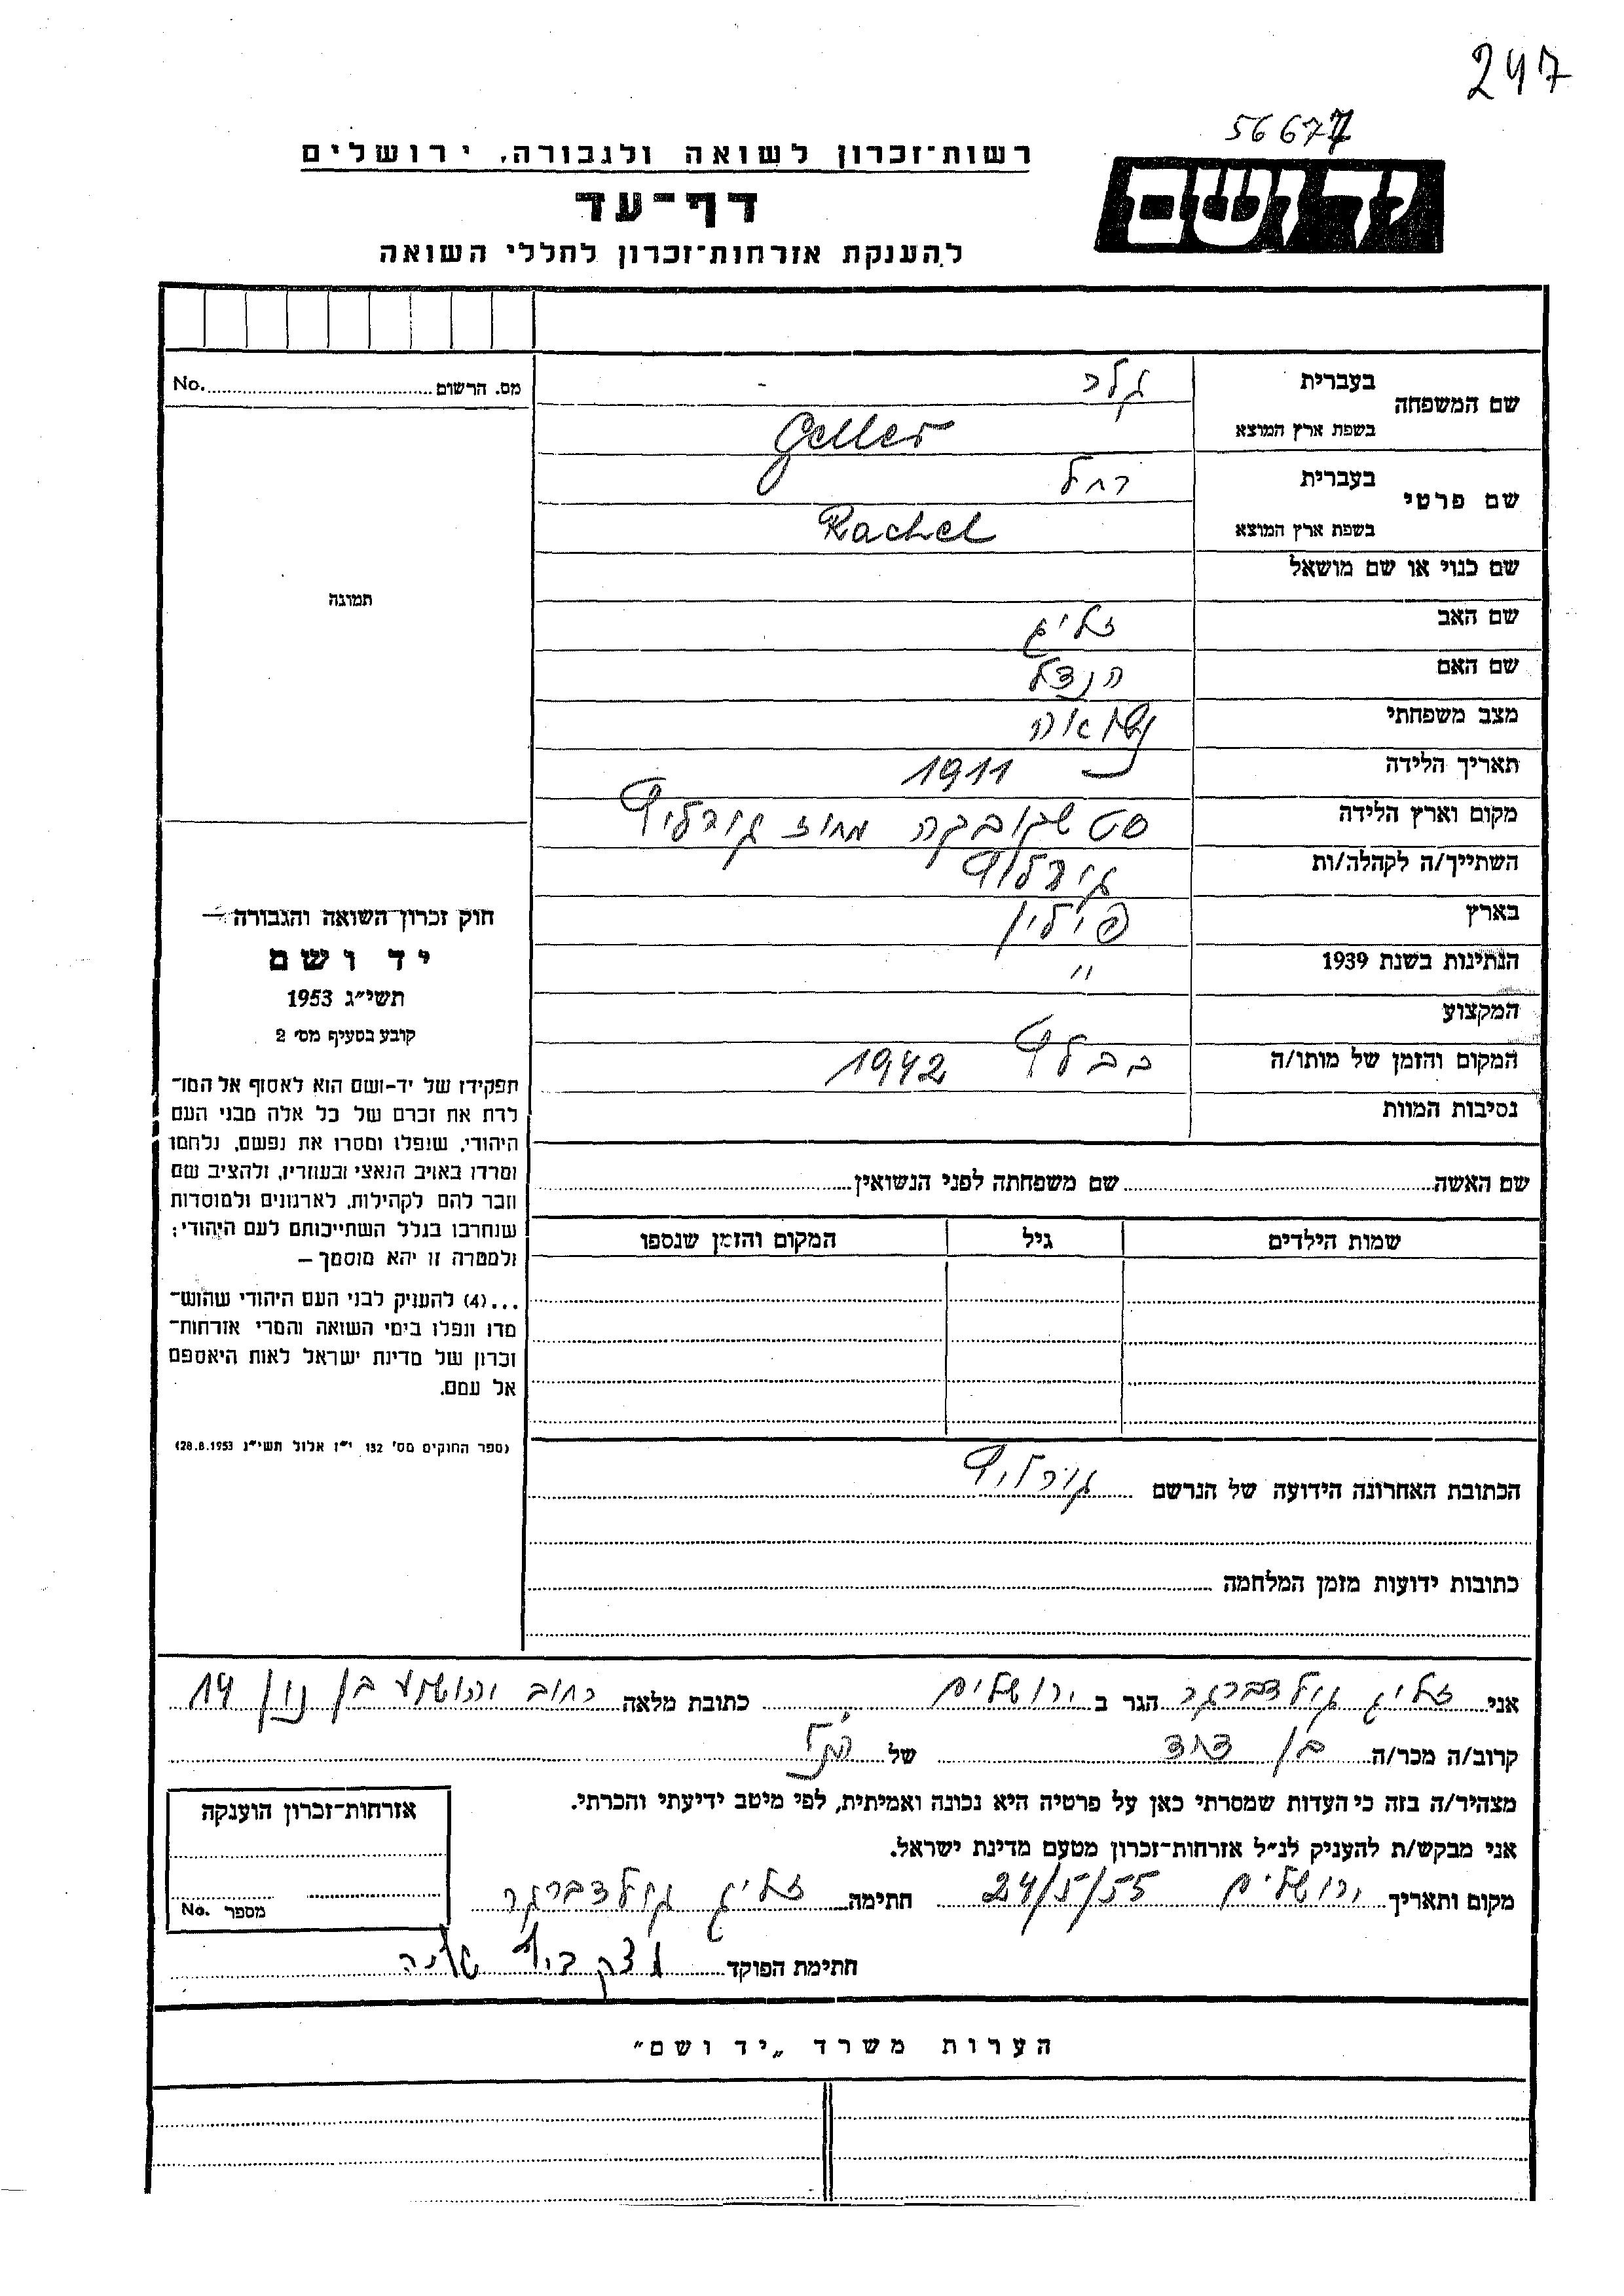 247
56677
יד ושם
רשות־זכרון לשואה ולגבורה, ירושלים
דף־עד
להענקת אזרחות־זכרון לחללי השואה
מס. הרשום No.
שם המשפחה
בעברית גלר
בשפת ארץ המוצא Geller
שם פרטי
בעברית רחל
בשפת ארץ המוצא Rachel
שם כנוי או שם מושאל
שם האב זליג
שם האם הנצל
מצב משפחתי נשואה
תאריך הלידה 1911
מקום וארץ הלידה מחוז גורליץ
השתייך/ה לקהלה/ות גורליץ
בארץ פולין
הנתינות בשנת 1939 "
המקצוע
המקום והזמן של מותו/ה 1942
נסיבות המוות
שם האשה שם משפחתה לפני הנשואין
שמות הילדים גיל המקום והזמן שנספו
הכתובת האחרונה הידועה של הנרשם גורליץ
כתובות ידועות מזמן המלחמה
תמונה
חוק זכרון השואה והגבורה —
יד ושם
תשי״ג 1953
קובע בסעיף מס׳ 2
תפקידו של יד-ושם הוא לאסוף אל המו־
לדת את זכרם של כל אלה מבני העם
היהודי, שנפלו ומסרו את נפשם, נלחמו
ומרדו באויב הנאצי ובעוזריו, ולהציב שם
וזכר להם לקהילות, לארגונים ולמוסדות
שנחרבו בגלל השתייכותם לעם היהודי;
ולמטרה זו יהא מוסמך —
...(4) להעניק לבני העם היהודי שהוש־
מדו ונפלו בימי השואה והמרי אזרחות־
זכרון של מדינת ישראל לאות היאספם
אל עמם.
(ספר החוקים מס׳ 132 י״ז אלול תשי״ג 28.8.1953)
אני זליג גולדברגר הגר ב ירושלים כתובת מלאה רחוב יהושע בן נון 14
קרוב/ה מכר/ה בן דוד של הנ״ל
מצהיר/ה בזה כי העדות שמסרתי כאן על פרטיה היא נכונה ואמיתית, לפי מיטב ידיעתי והכרתי.
אני מבקש/ת להעניק לנ״ל אזרחות־זכרון מטעם מדינת ישראל.
מקום ותאריך ירושלים 24/5/55 חתימה זליג גולדברגר
חתימת הפוקד
אזרחות־זכרון הוענקה
מספר No.
הערות משרד „יד ושם״